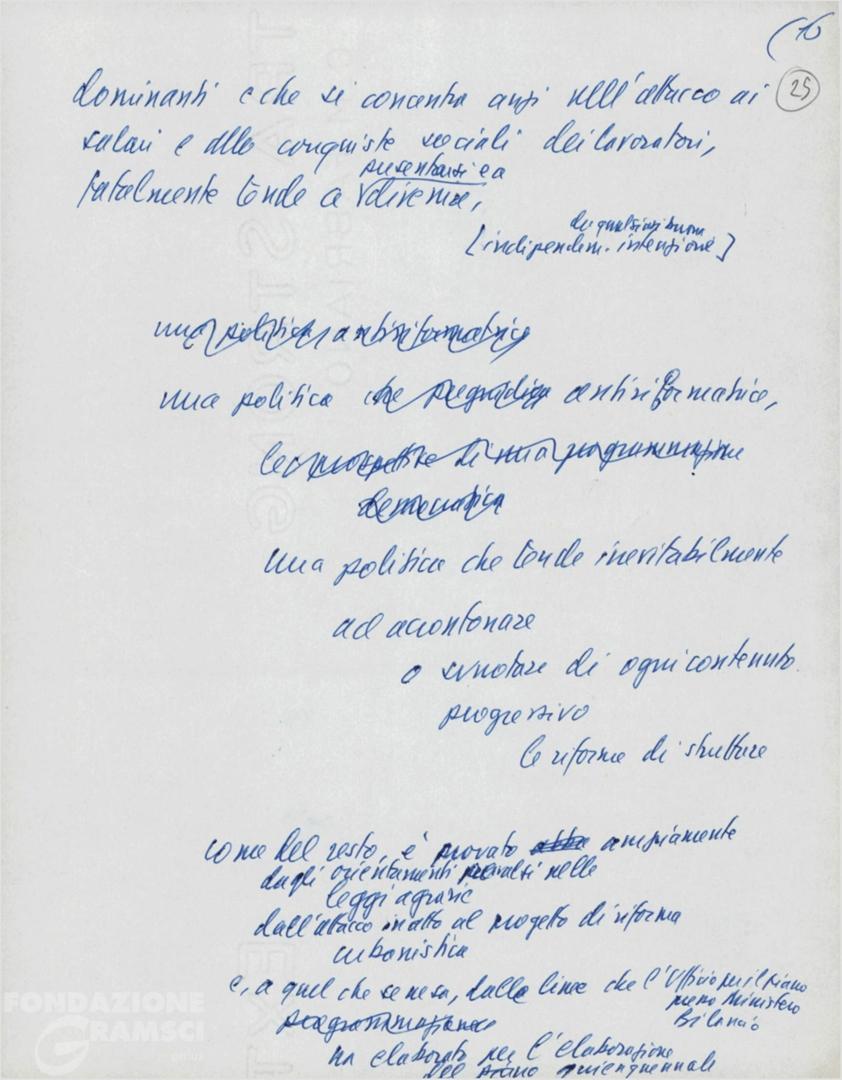 (16
25
dominanti e che si concentra anzi nell'attacco ai
salari e alle conquiste sociali dei lavoratori,
presentarsi e a
fatalmente tende a divenire,
da qualsiasi buona
[indipendem. intenzione]
una politica antiriformatrice
una politica che pregiudica antiriformatrice,
le prospettive di una programmazione
democratica
una politica che tende inevitabilmente
ad accantonare
o svuotare di ogni contenuto
progressivo
le riforme di struttura
come del resto, è provato ampiamente
dagli orientamenti prevalsi nelle
leggi agrarie
dall'attacco in atto al progetto di riforma
urbanistica
e, a quel che se ne sa, dalle linee che l'Ufficio per il piano
presso Ministero
Bilancio
programmazione
ha elaborato per l'elaborazione
del piano quinquennale
FONDAZIONE
GRAMSCI
onlus